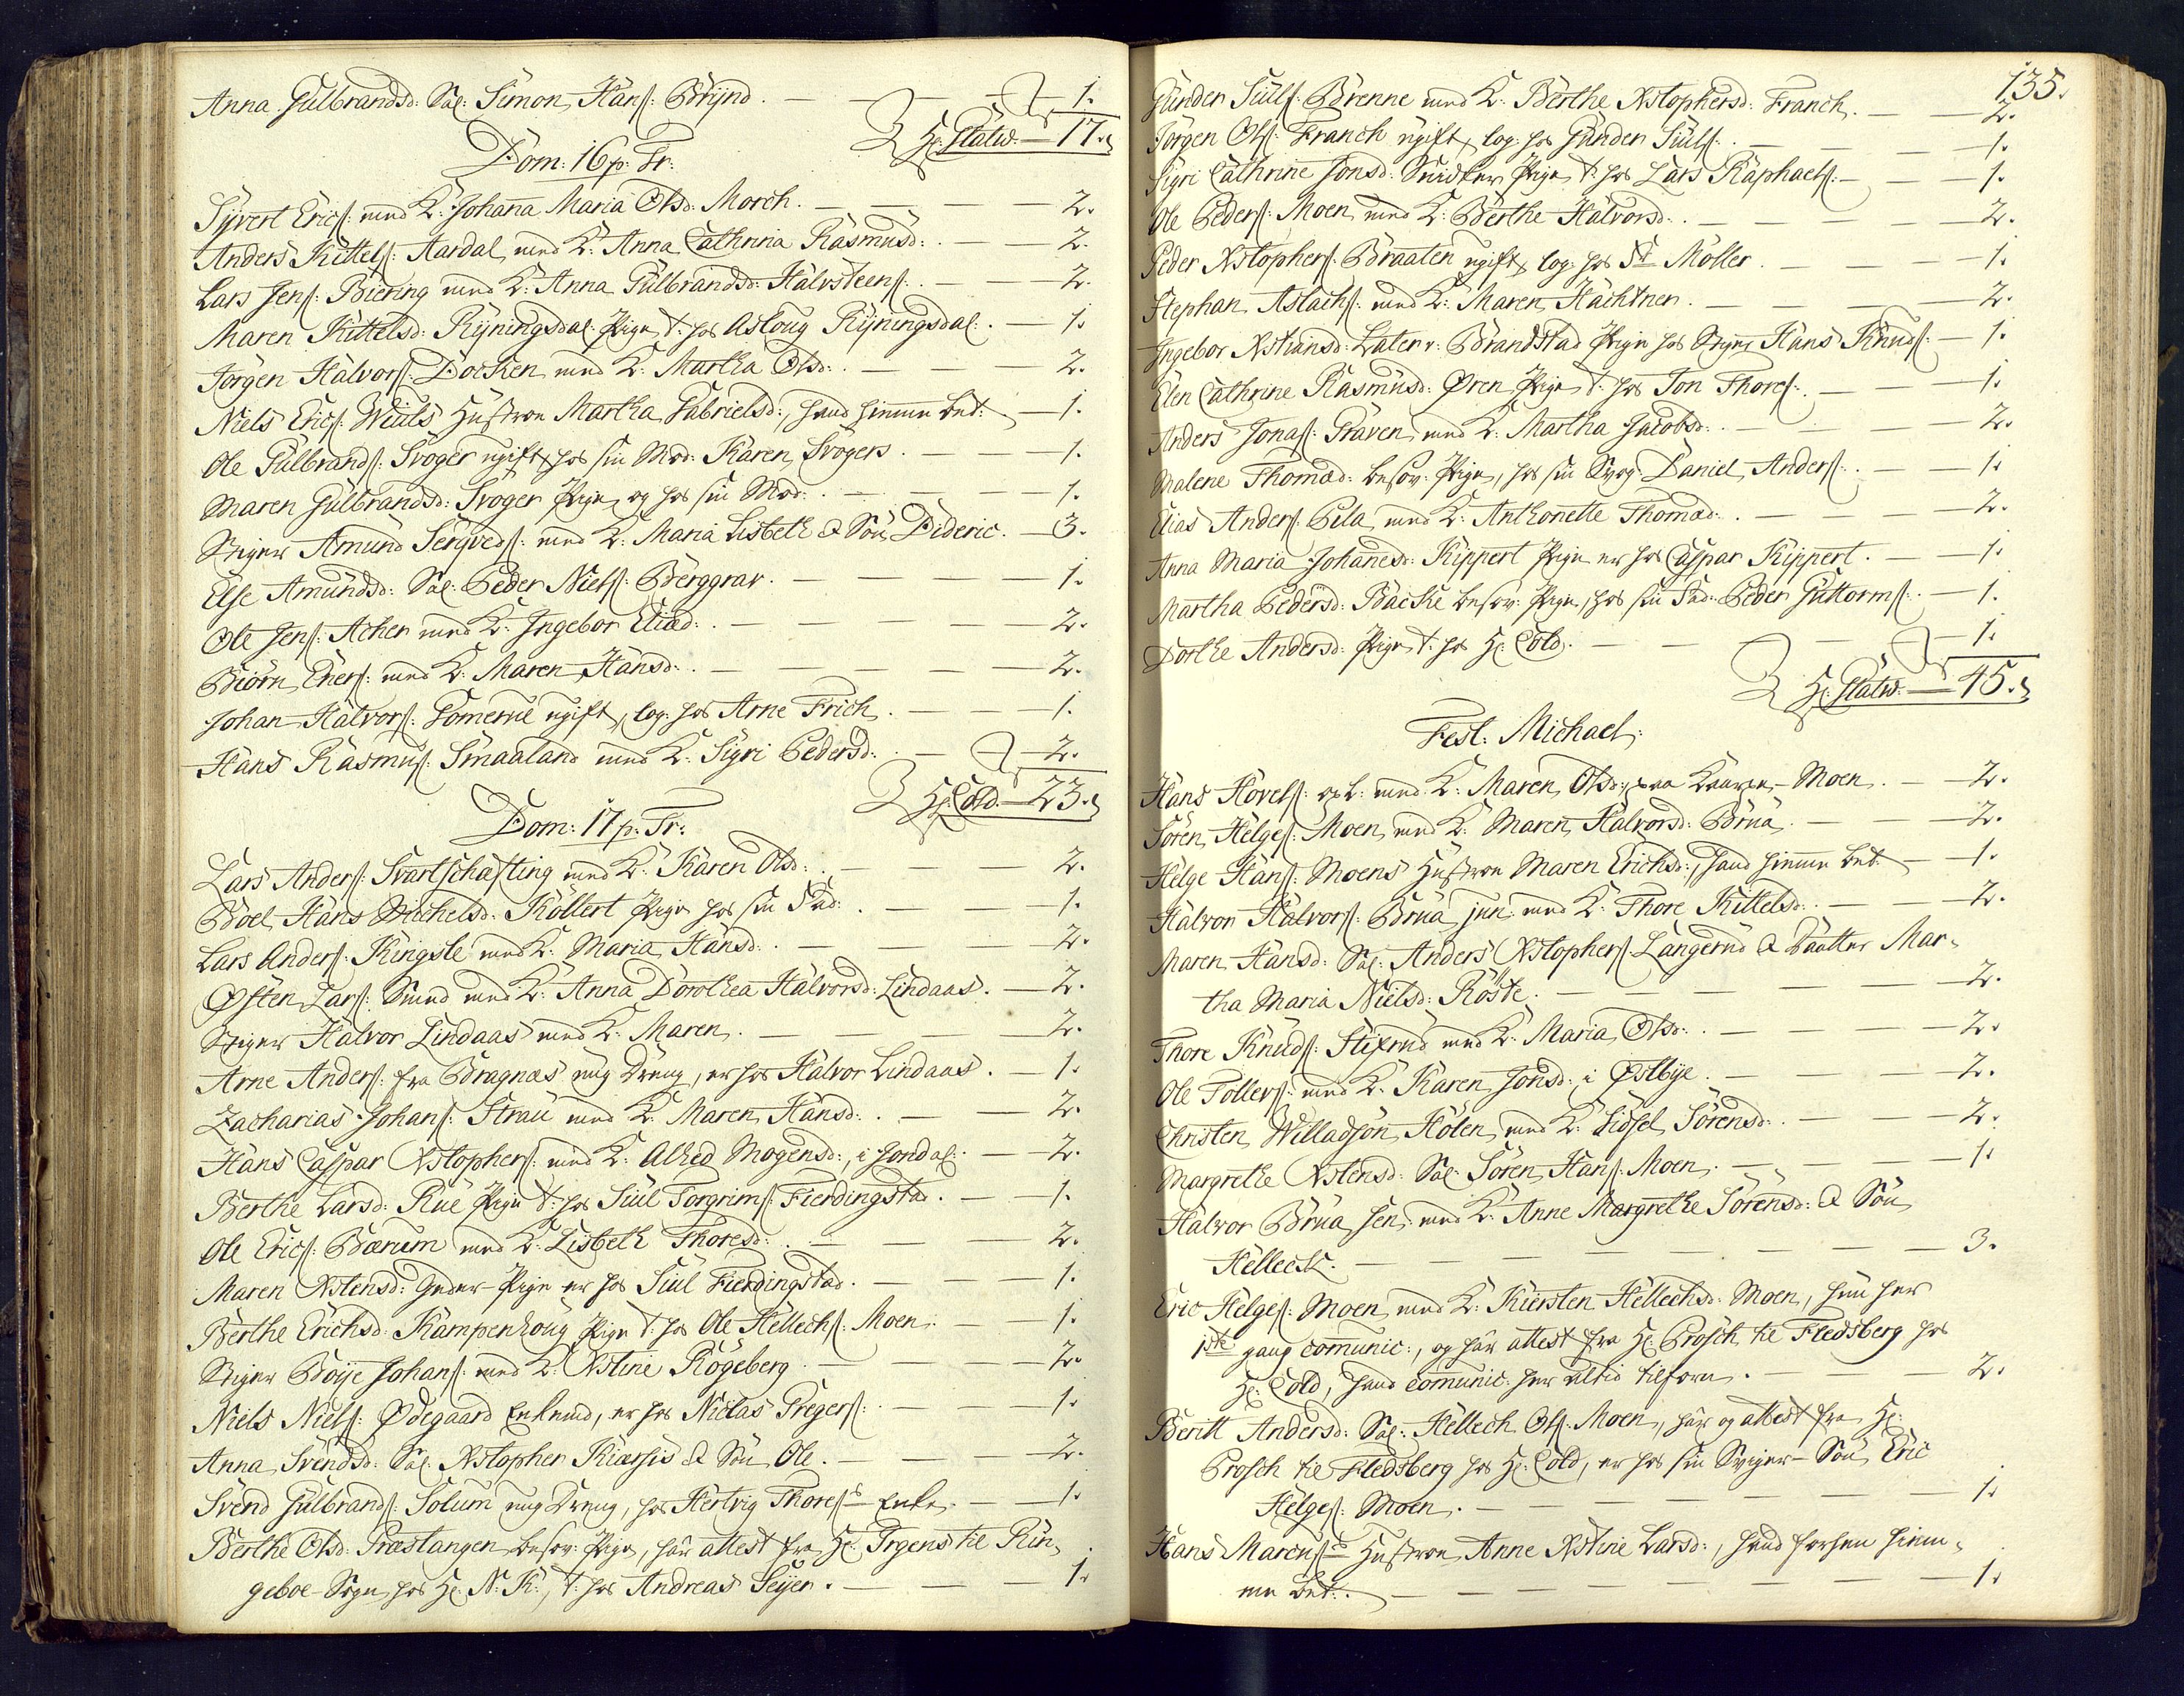 Anna Gulbrandsd: Sal: Simon Hans: Brynd. — 1.
Hr: Flatw. — 17.
Dom: 16 p: Tr:
Syvert Erics: med K: Johana Maria Olsd: Morch. — 2.
Anders Kittels: Aardal, med K: Anna Cathrina Rasmusd: — 2.
Lars Jens: Biering med K: Anna Gulbrandsd: Halvsteens: — 2.
Maren Kittelsd: Ryningsdal: Pige, t: hos Asloug Ryningsdal: — 1.
Jörgen Halvors: Docken med K: Martha Olsd: — 2.
Niels Erics: Wiuls Hustroe Martha Gabrielsd:, hand hiemme bet: — 1.
Ole Gulbrands: Svöger ugift, hos sin Mod: Karen Svögers. — 1.
Maren Gulbrandsd: Svöger Pige, og hos sin Mod: — 1.
Stiger Amund Sergveds: med K: Maria Lisbeth & Sön Dideric. — 3.
Else Amundsd: Sal: Peder Niels: Berggrav. — 1.
Ole Jens: Acher med K: Ingebor Eliæd: — 2.
Biörn Eners: med K: Maren Hansd: — 2.
Johan Halvors: Gomerue ugift, log: hos Arne Frich. — 1.
Hans Rasmus: Smaaland med K: Sigri Pedersd: — 2.
Hr: Cold. — 23.
Dom: 17 p: Tr:
Lars Anders: Svartschafting med K: Karen Olsd: — 2.
Boel Hans Michelsd: Köllert Pige hos sin Fad: — 1.
Lars Anders: Kingsle med K: Maria Hansd: — 2.
Østen Lars: Smed med K: Anna Dorothea Halvorsd: Lindaas. — 2.
Stiger Halvor Lindaas med K: Maren. — 2.
Arne Anders: fra Bragnæs ung Dreng, er hos Halvor Lindaas. — 1.
Zacharias Johans: Strau med K: Maren Hansd: — 2.
Hans Caspar Xstophers: med K: Alhed Mogensd:, i Jondal: — 2.
Berthe Larsd: Rue Pige t: hos Siul Torgrims: Fierdingstad. — 1.
Ole Erics: Bærum med K: Lisbeth Thoresd: — 2.
Maren Xstensd: Pige er hos Siul Fierdingstad. — 1.
Berthe Erichsd: Kampenhoug Pige t: hos Ole Hellechs: Moen. — 1.
Stiger Böije Johans: med K: Xstine Rögeberg. — 2.
Niels Niels: Ødegaard Enkemd, er hos Niclas Gregers: — 1.
Anna Svendsd: Sal: Xstopher Kiærsis & Sön Ole. — 2.
Svend Gulbrands: Solum ung Dreng, hos Hertvig Thores: Enke. — 1.
Berthe Olsd: Præstangen besov: Pige, har attest fra Hr: Irgens til Rin-
geboe-Sogn hos Hr: N: K:, t: hos Andreas Seyer. — 1.
135.
Gunder Siuls: Brenne med K: Berthe Xstophersd: Franch. — 2.
Jörgen Ols: Franch ugift, log: hos Gunder Siuls: — 1.
Sigri Cathrine Jonsd: Snidker Pige, t: hos Lars Raphaels: — 1.
Ole Peders: Moen, med K: Berthe Halvorsd: — 2.
Peder Xstophers: Braaten ugift, log: hos Sr Möller. — 1.
Stephan Aslachs: med K: Maren Hachtner. — 2.
Ingebor Xstiansd: Later v: Brandstad Pige hos Stiger Hans Knuds: — 1.
Elen Cathrine Rasmusd: Øren Pige t: hos Jon Thores: — 1.
Anders Jonas: Graven, med K: Martha Jacobsd: — 2.
Malene Thomæd: besov: Pige, hos sin Svog: Daniel Anders: — 1.
Elias Anders: Pela, med K: Anthonette Thomæd: — 2.
Anna Maria Johanesd: Kippert Pige er hos Caspar Kippert. — 1.
Martha Pedersd: Backe besov: Pige, hos sin Fad: Peder Guttorms: — 1.
Dorthe Andersd: Pige, t: hos Hr: Cold. — 1.
Hr: Flatw. — 45.
Fest: Michael:
Hans Hövels: med K: Maren Olsd: paa Moen. — 2.
Sören Helges: Moen, med K: Maren Halvorsd: Brua. — 2.
Helge Hans: Moens Hustroe Maren Erichsd:, hand hiemme bet: — 1.
Halvor Halvors: Brua jun: med K: Thore Kittelsd: — 2.
Maren Hansd: Sal: Anders Xstophers: Langerud & Daatter Mar-
tha Maria Nielsd: Röste. — 2.
Thore Knuds: Stixrud med K: Maria Olsd: — 2.
Ole Tollers: med K: Karen Jonsd: i Østbye. — 2.
Christen Willadsön Hölen med K: Sidsel Sörensd: — 2.
Margrethe Xstensd: Sal: Sören Hans: Moen. — 1.
Halvor Brua sen: med K: Anne Margrethe Sörensd: & Sön
Hellech. — 3.
Eric Helges: Moen, med K: Kiersten Hellechsd: Moen, hun her
1ste gang comunic:, og har attest fra Hr: Prosch til Fledsberg hos
Hr: Cold, hand comunic: her altid tilforn. — 2.
Beritt Andersd: Sal: Hellech Ols: Moen, har og attest fra Hr:
Prosch til Fledsberg hos Hr: Cold, er hos sin Sviger-Sön Eric
Helges: Moen. — 1.
Hans Marcus: Hustroe Anne Xstine Larsd:, hand forhen hiem-
me bet: — 1.